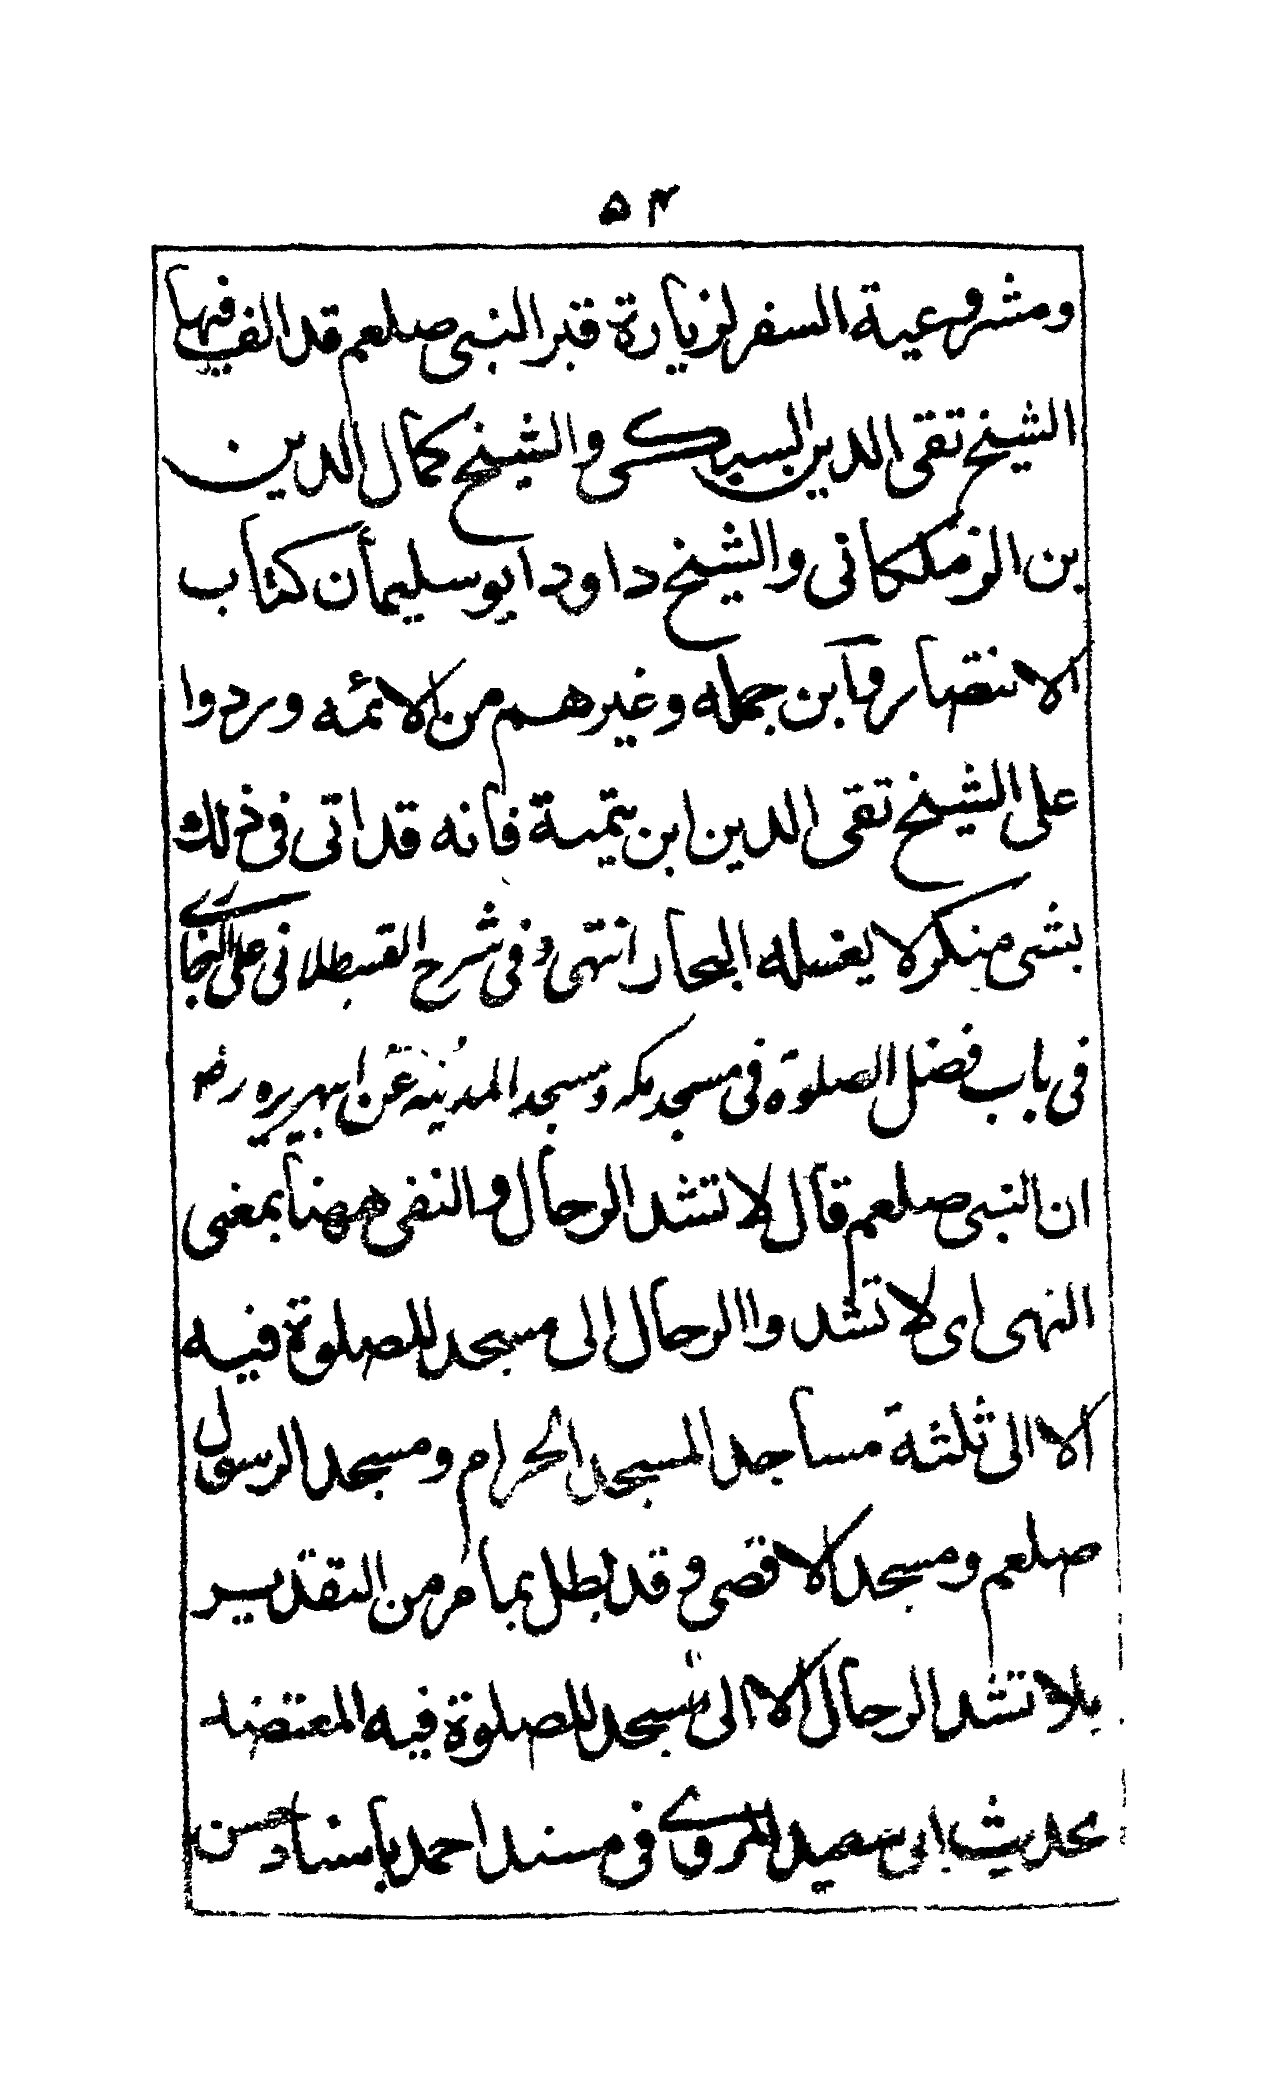 ۵۴
ومشروعية السفر لزيارة قبر النبي صلعم قد الف فيها
الشيخ تقي الدين السبكي والشيخ كمال الدين
بن الزملكاني والشيخ داود ابو سليمان كتاب
الانتصار وابن جمله وغيرهم من الائمه وردوا
على الشيخ تقي الدين ابن تيمية فانه قد اتى في ذلك
بشي منكر لا يغسله البحار انتهى وفي شرح القسطلاني على البخاري
في باب فضل الصلوة في مسجد مكه ومسجد المدينه عن ابيهريره رض
ان النبي صلعم قال لا تشد الرحال والنفي ههنا بمعنى
النهي اي لا تشد واالرحال الى مسجد للصلوة فيه
الا الى ثلثة مساجد المسجد الحرام ومسجد الرسول
صلعم ومسجد الاقصى وقد بطل بما مر من التقدير
بلا تشد الرحال الا الى مسجد للصلوة فيه المعتضد
بحديث ابي سعيد المروي في مسند احمد باسناد حسن